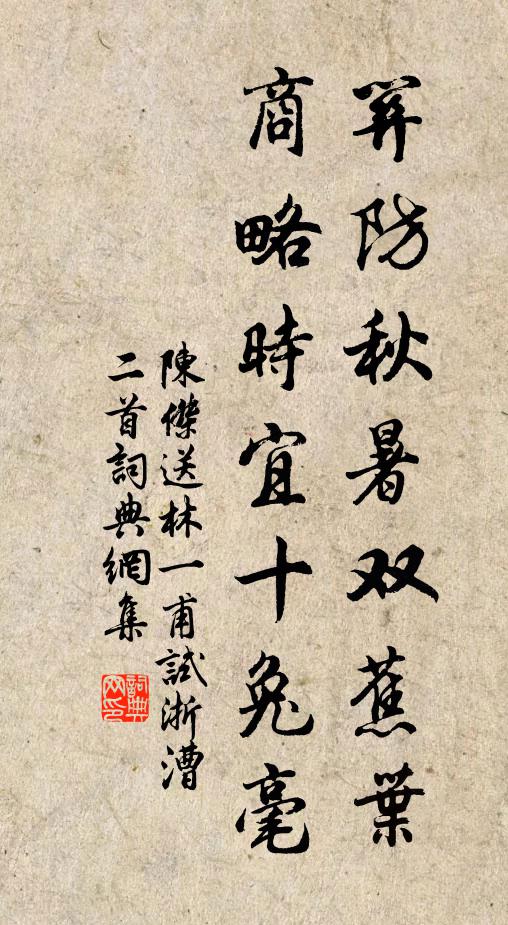 关防秋暑双蕉葉
商略時宜十兔毫
陳傑送林一甫試浙漕
二首詞典網集
詞典
网印